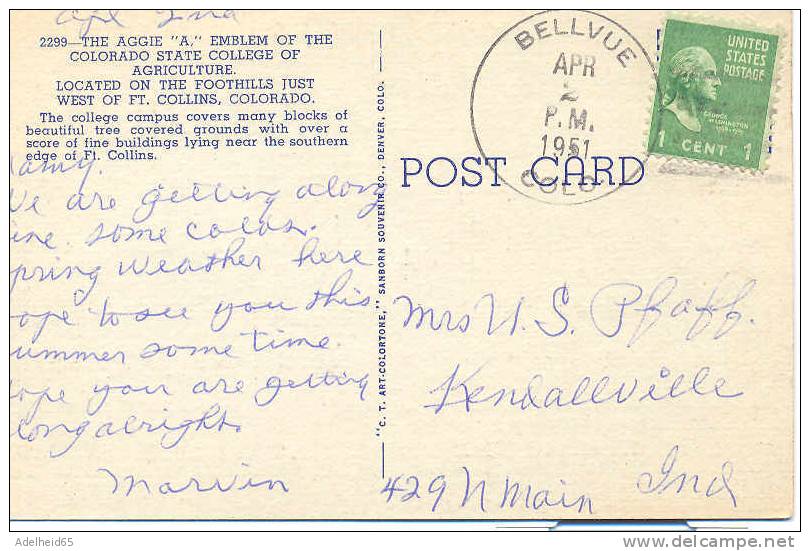 Apr 2nd
2299—THE AGGIE "A," EMBLEM OF THE
COLORADO STATE COLLEGE OF
AGRICULTURE.
LOCATED ON THE FOOTHILLS JUST
WEST OF FT. COLLINS, COLORADO.
The college campus covers many blocks of
beautiful tree covered grounds with over a
score of fine buildings lying near the southern
edge of Ft. Collins.
amy.
We are getting along
ine. some colds.
pring weather here
ope to see you this
ummer some time.
ope you are getting
long alright
Marvin
"C. T. ART-COLORTONE," SANBORN SOUVENIR CO., DENVER, COLO.
POST CARD
BELLVUE
APR
2
P.M.
1951
COLO.
UNITED
STATES
POSTAGE
GEORGE
WASHINGTON
1 CENT 1
Mrs U. S. Pfaff.
Kendallville
429 N Main Ind
Adelheid65
www.delcampe.net